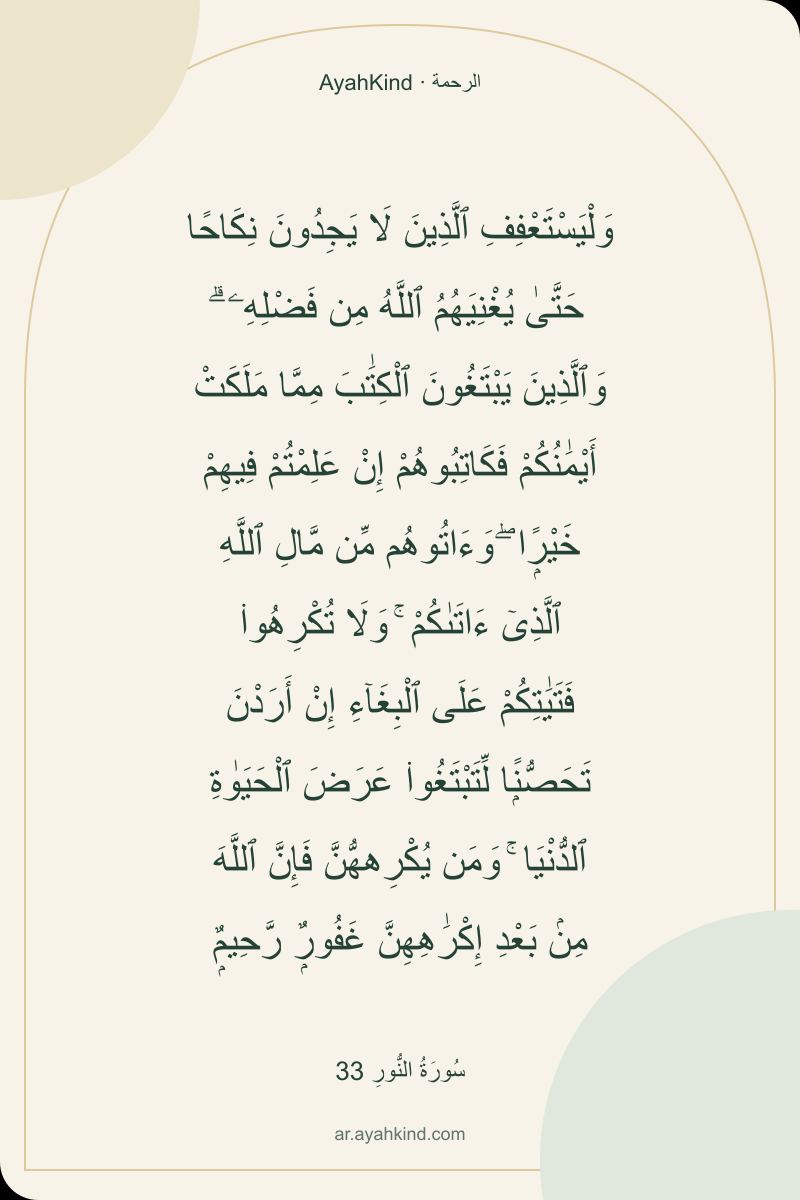 AyahKind · الرحمة
وَلْيَسْتَعْفِفِ ٱلَّذِينَ لَا يَجِدُونَ نِكَاحًا
حَتَّىٰ يُغْنِيَهُمُ ٱللَّهُ مِن فَضْلِهِۦ ۗ
وَٱلَّذِينَ يَبْتَغُونَ ٱلْكِتَٰبَ مِمَّا مَلَكَتْ
أَيْمَٰنُكُمْ فَكَاتِبُوهُمْ إِنْ عَلِمْتُمْ فِيهِمْ
خَيْرًۭا ۖ وَءَاتُوهُم مِّن مَّالِ ٱللَّهِ
ٱلَّذِىٓ ءَاتَىٰكُمْ ۚ وَلَا تُكْرِهُوا۟
فَتَيَٰتِكُمْ عَلَى ٱلْبِغَآءِ إِنْ أَرَدْنَ
تَحَصُّنًۭا لِّتَبْتَغُوا۟ عَرَضَ ٱلْحَيَوٰةِ
ٱلدُّنْيَا ۚ وَمَن يُكْرِههُّنَّ فَإِنَّ ٱللَّهَ
مِنۢ بَعْدِ إِكْرَٰهِهِنَّ غَفُورٌۭ رَّحِيمٌۭ
سُورَةُ النُّورِ 33
ar.ayahkind.com